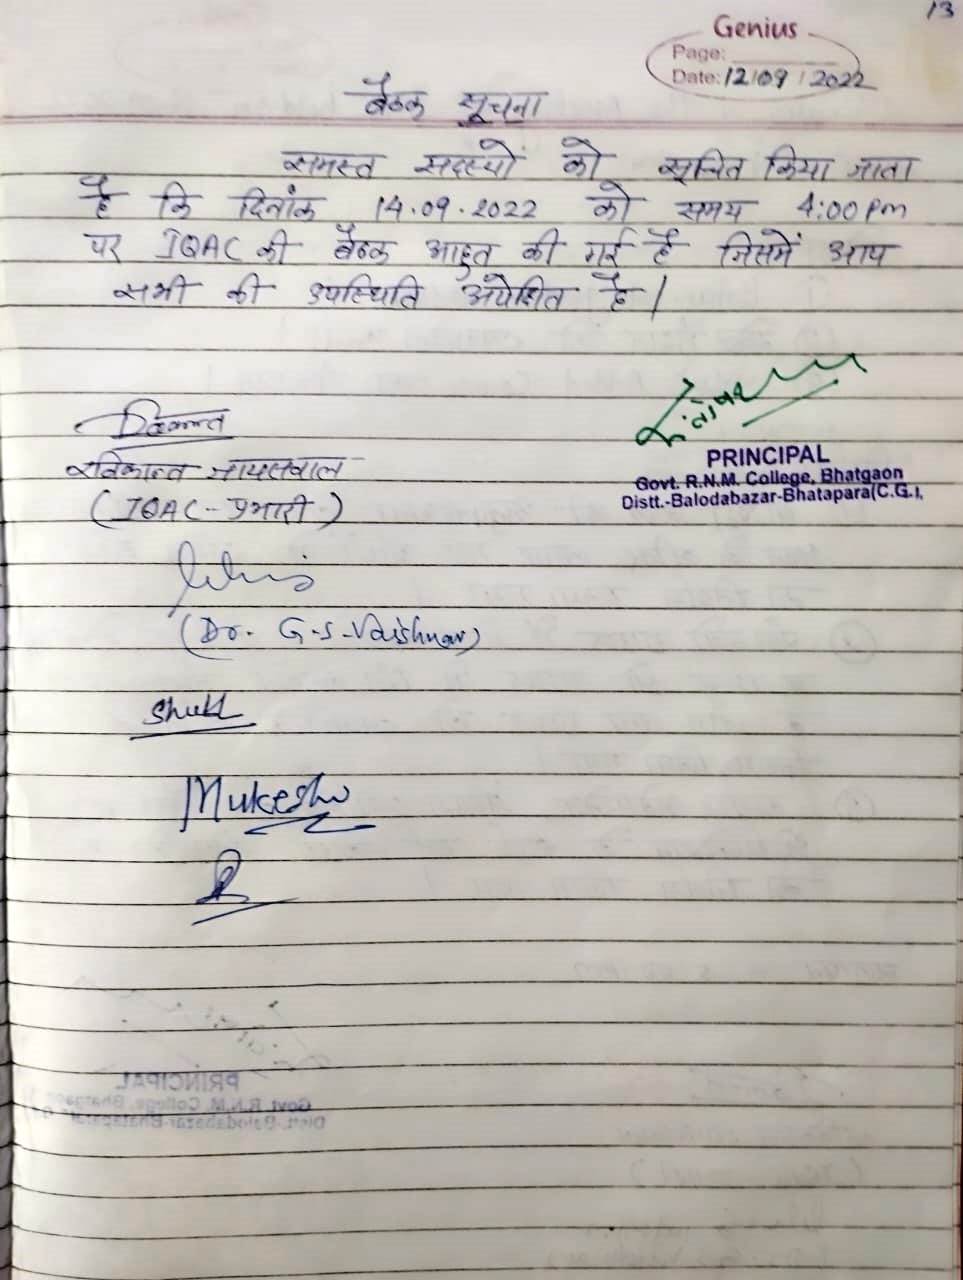 13
Genius
Page:
Date: 12/09/2022
बैठक सूचना
समस्त सदस्यों को सूचित किया जाता
है कि दिनांक 14.09.2022 को समय 4:00 pm
पर IQAC की बैठक आहुत की गई है जिसमें आप
सभी की उपस्थिति अपेक्षित है।
PRINCIPAL
Govt. R.N.M. College, Bhatgaon
Distt.-Balodabazar-Bhatapara(C.G.),
रविकान्त जायसवाल
(IQAC- प्रभारी)
(Dr. G.S. Vaishnav)
Mukesh